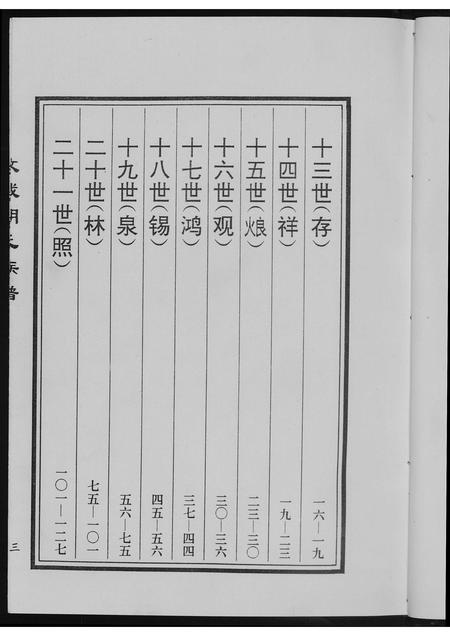 十三世（存） 一六—一九
十四世（祥） 一九—二三
十五世（烺） 二三—三〇
十六世（观） 三〇—三六
十七世（鸿） 三七—四四
十八世（锡） 四五—五六
十九世（泉） 五六—七五
二十世（林） 七五—一〇一
二十一世（照） 一〇一—一二七
氏族谱
三